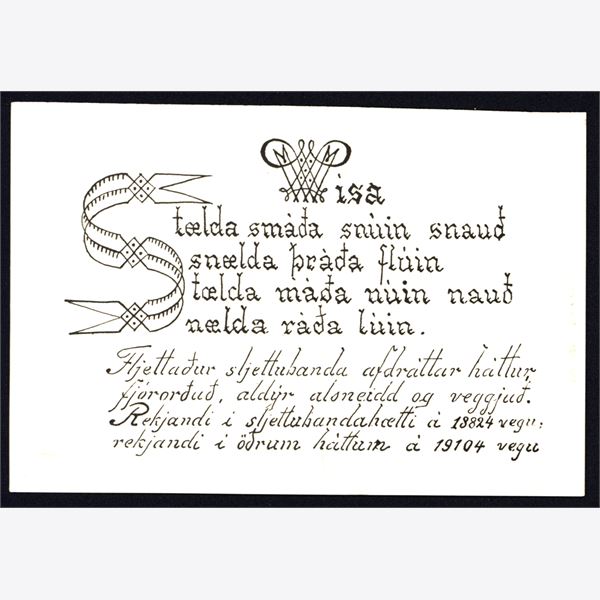 Vísa
Stælda smáða snúin snauð
snælda þráða flúin
tælda máða núin nauð
nælda ráða lúin.
Fljettaður sljettubanda afdráttar háttur,
fjórorðuð, aldýr alsneidd og veggjuð.
Rekjandi i sljettubandahætti á 18824 vegu;
rekjandi i öðrum háttum á 19104 vegu